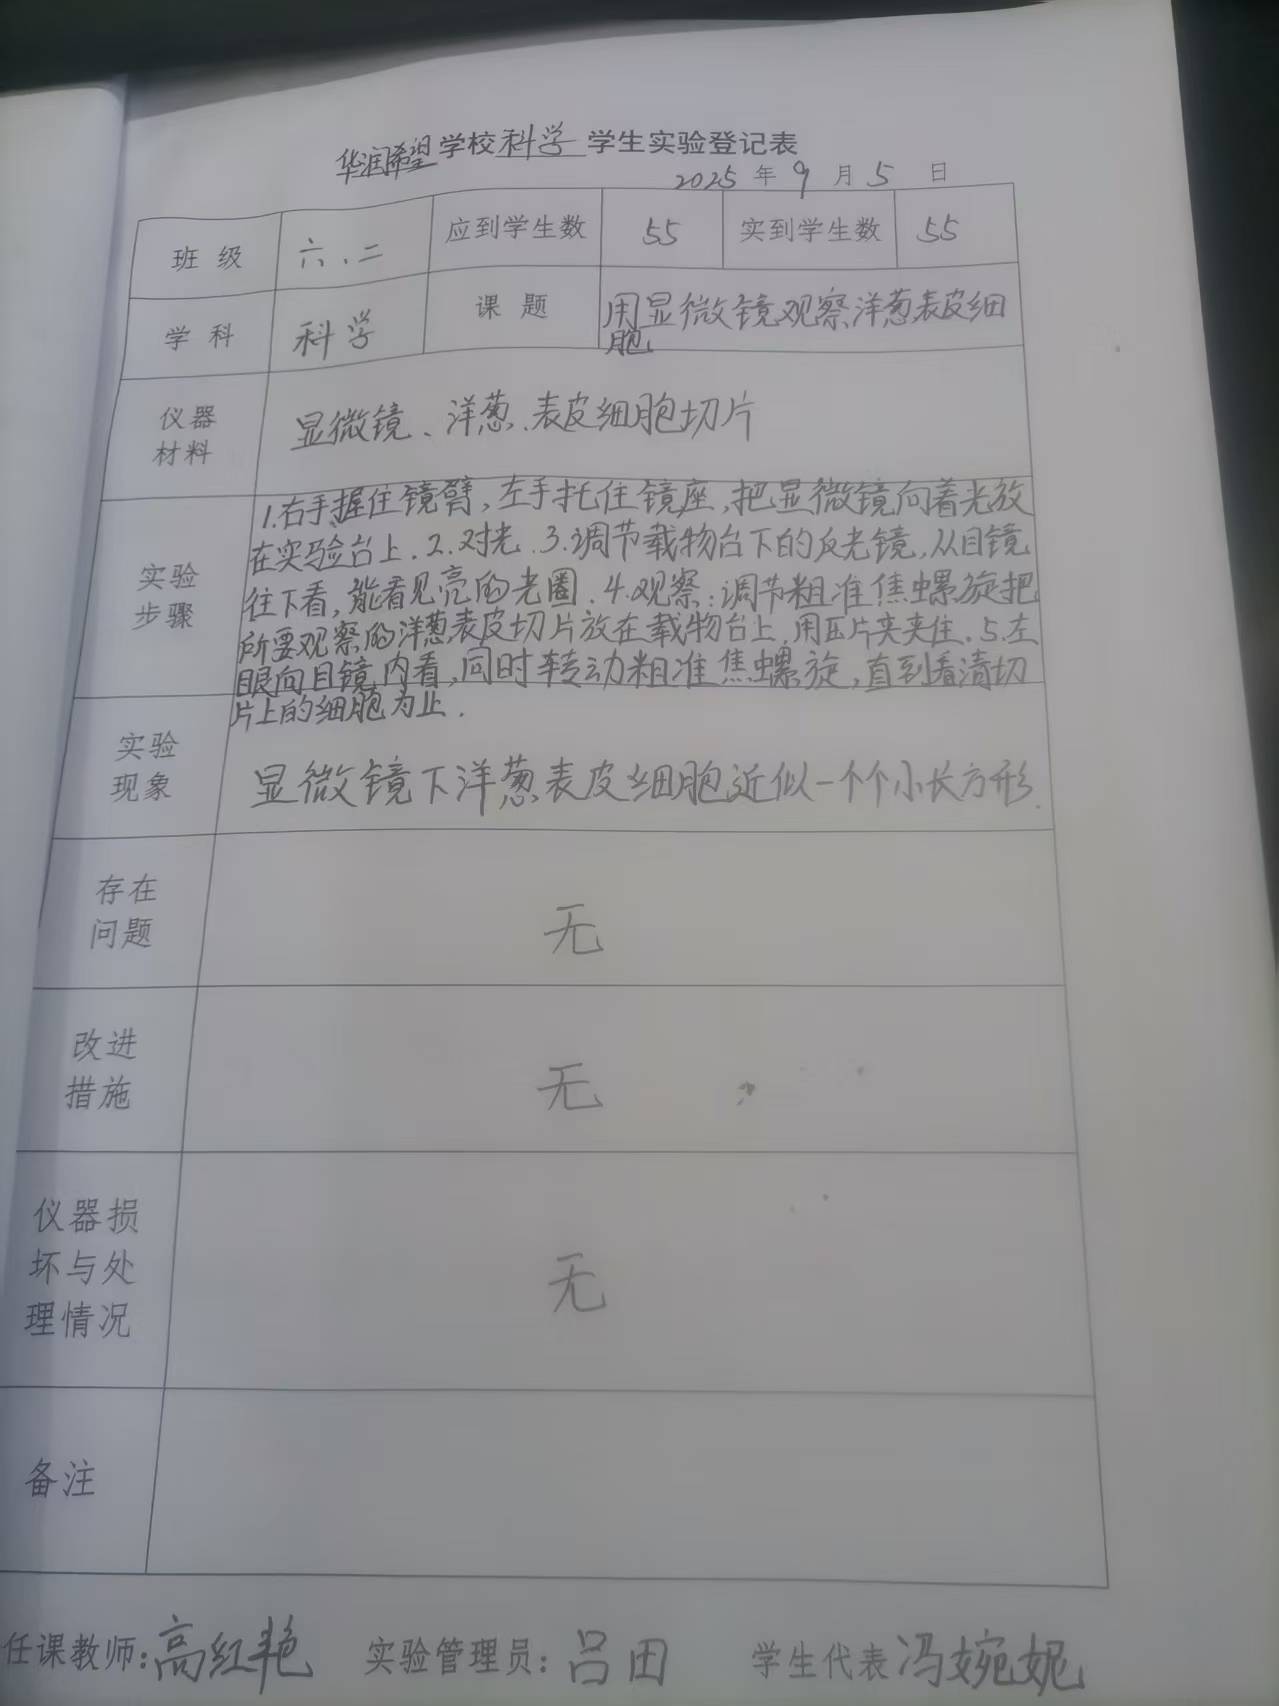 华润希望学校科学学生实验登记表
2025年9月5日
班级 六、二 应到学生数 55 实到学生数 55
学科 科学 课题 用显微镜观察洋葱表皮细
胞
仪器
材料
显微镜、洋葱、表皮细胞切片
实验
步骤
1.右手握住镜臂,左手托住镜座,把显微镜向着光放
在实验台上.2.对光.3.调节载物台下的反光镜,从目镜
往下看,能看见亮的光圈.4.观察:调节粗准焦螺旋把
所要观察的洋葱表皮切片放在载物台上,用压片夹夹住.5.左
眼向目镜内看,同时转动粗准焦螺旋,直到看清切
片上的细胞为止.
实验
现象
显微镜下洋葱表皮细胞近似一个个小长方形.
存在
问题
无
改进
措施
无
仪器损
坏与处
理情况
无
备注
任课教师:高红艳 实验管理员:吕田 学生代表 冯婉妮